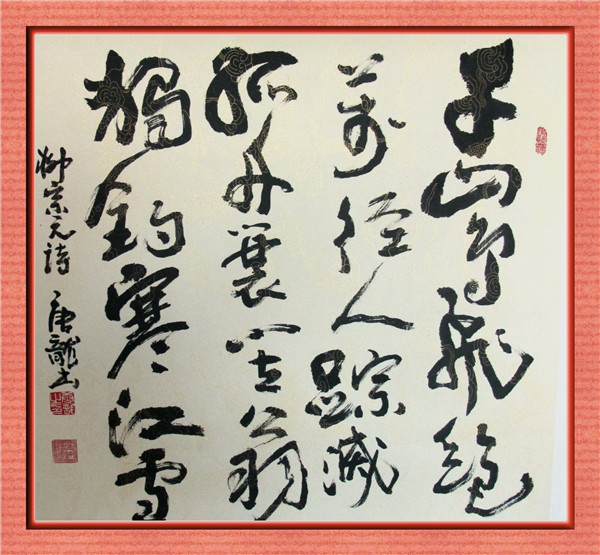 千山鳥飛絕
萬徑人踪滅
孤舟蓑笠翁
獨釣寒江雪
柳宗元詩 唐龍書